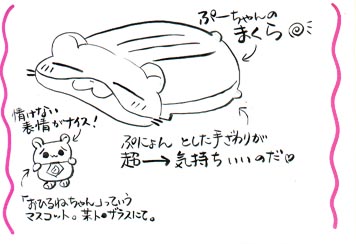 ぷーちゃんの
まくら
情けない
表情がナイス！
ぷにょん とした手ざわりが
超→気持ちいいのだ♡
「おひるねちゃん」っていう
マスコット。某ト●ザラスにて。